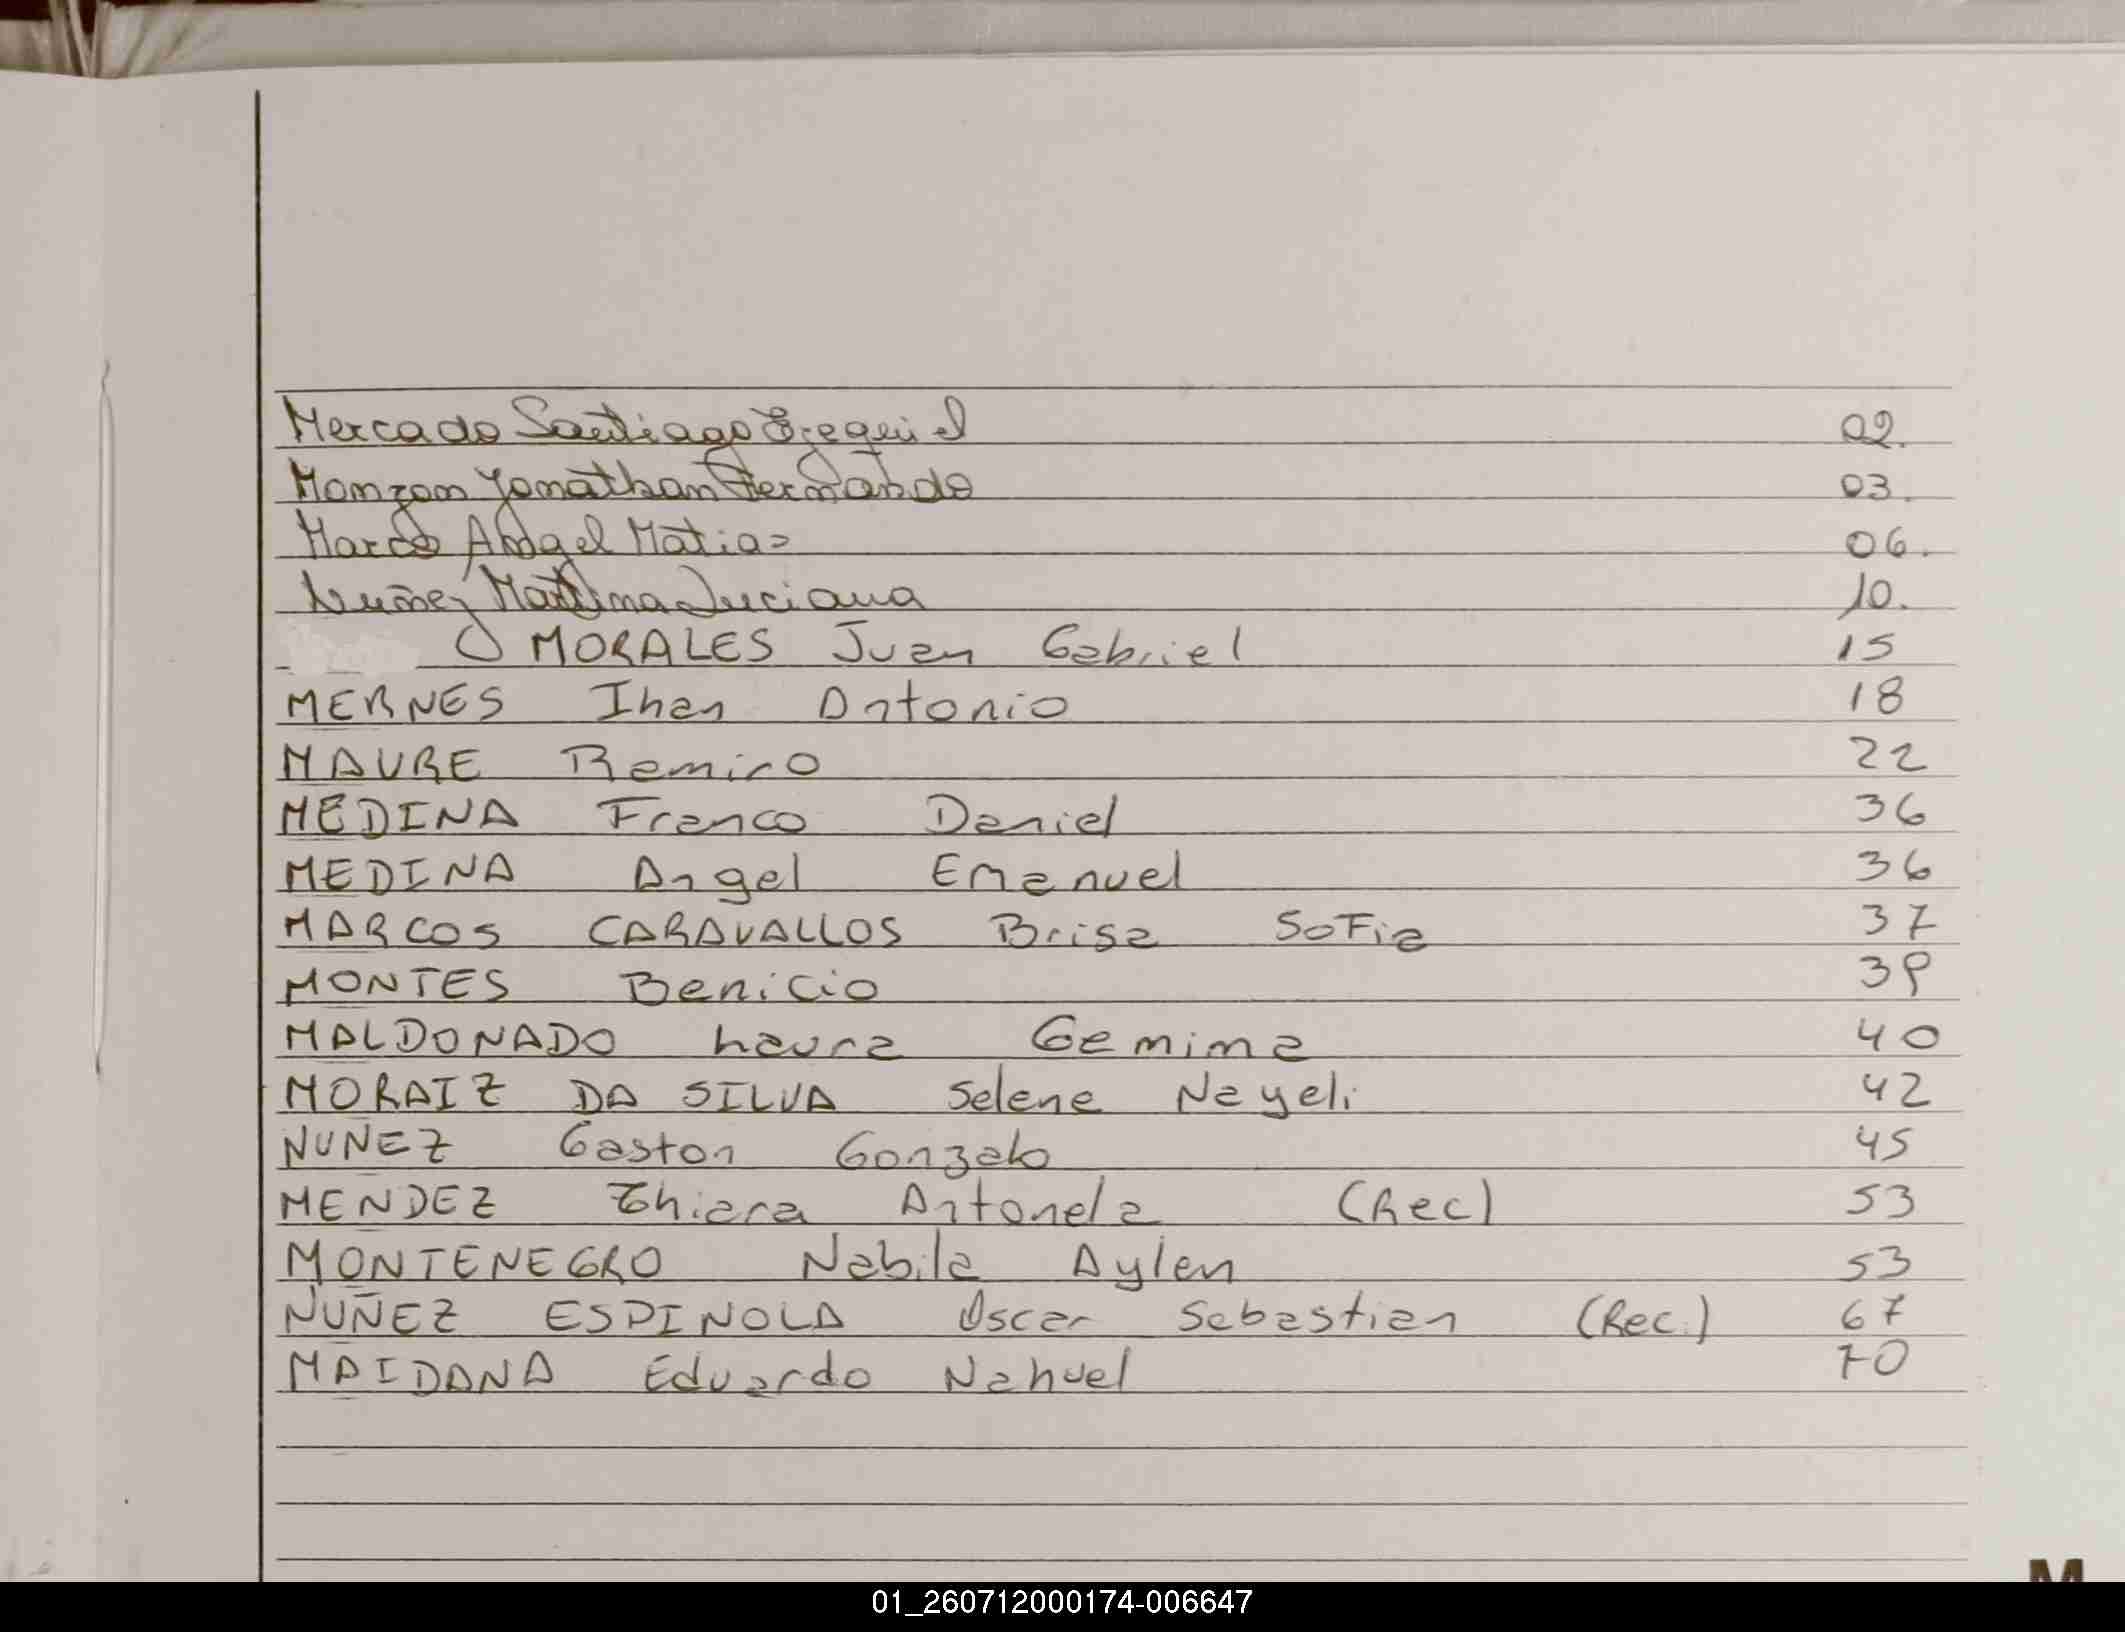 Mercado Santiago Ezequiel 02.
Monzon Yonathan Fernando 03.
Marco Angel Matias 06.
Nuñez Martina Luciana 10.
MORALES Juan Gabriel 15
MERNES Ihan Antonio 18
MAURE Ramiro 22
MEDINA Franco Daniel 36
MEDINA Angel Emanuel 36
MARCOS CARAVALLOS Brisa SoFia 37
MONTES Benicio 39
MALDONADO Laura Gemima 40
MORAIZ DA SILVA Selene Nayeli 42
NUÑEZ Gaston Gonzalo 45
MENDEZ Thiara Antonela (Rec) 53
MONTENEGRO Nabila Aylen 53
NUÑEZ ESPINOLA Oscar Sebastian (Rec.) 67
MAIDANA Eduardo Nahuel 70
M
01_260712000174-006647